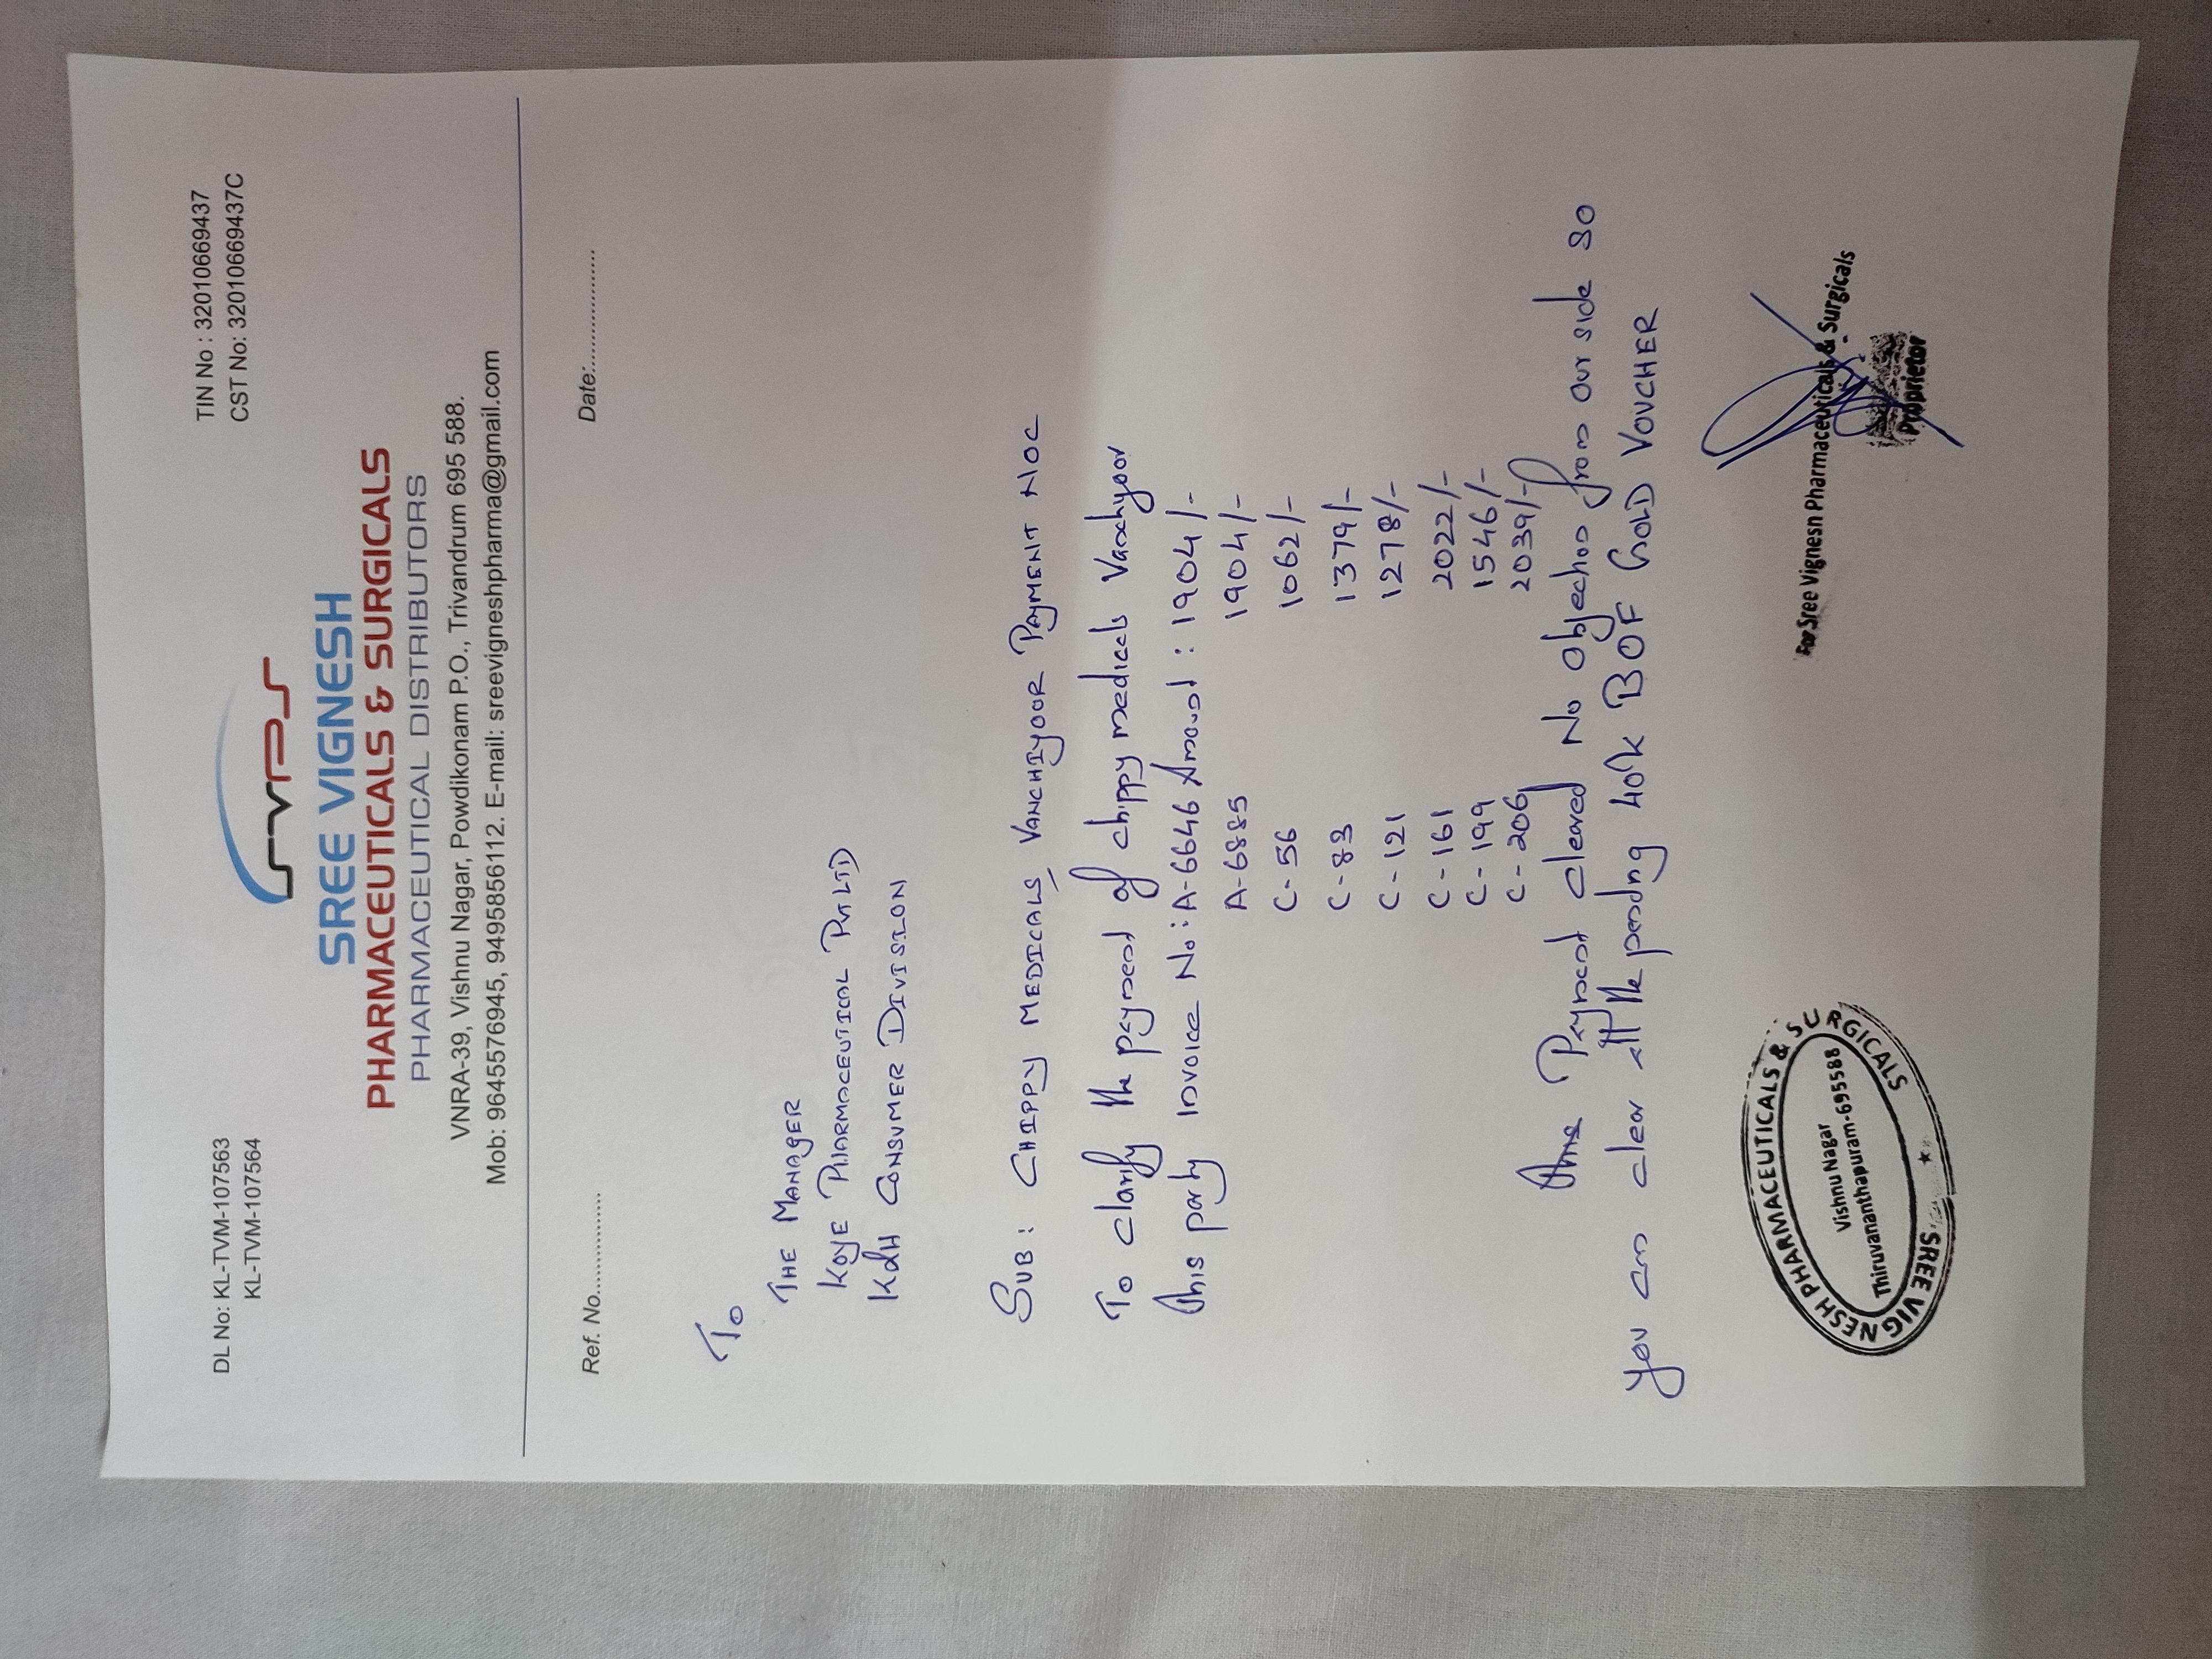 DL No: KL-TVM-107563
KL-TVM-107564
TIN No : 32010669437
CST No: 32010669437C
SVPS
SREE VIGNESH
PHARMACEUTICALS & SURGICALS
PHARMACEUTICAL DISTRIBUTORS
VNRA-39, Vishnu Nagar, Powdikonam P.O., Trivandrum 695 588.
Mob: 9645576945, 9495856112. E-mail: sreevigneshpharma@gmail.com
Ref. No.............. Date:................
To
THE MANAGER
KOYE PHARMACEUTICAL Pvt LTD
KDH CONSUMER DIVISION
SUB : CHIPPY MEDICALS, VANCHIYOOR PAYMENT NOC
To clarify the payment of chippy medicals Vanchyoor
This party Invoice No: A-6646 Amount : 1904/-
A-6885 1904/-
C-56 1062/-
C-83 1379/-
C-121 1278/-
C-161 2022/-
C-199 1546/-
C-206 2039/-
Payment cleared No objection from our side so
you can clear all the pending BOF GOLD VOUCHER
For Sree Vignesh Pharmaceuticals & Surgicals
Proprietor
SREE VIGNESH PHARMACEUTICALS & SURGICALS
Vishnu Nagar
Thiruvananthapuram-695588